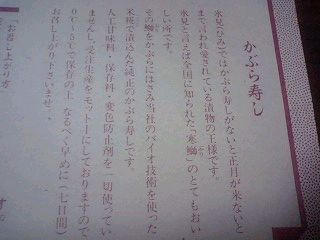 かぶら寿し
氷見(ひみ)ではかぶら寿しがないと正月が来ないと
まで言われ愛されている漬物の王様です。
氷見と言えば全国に知られた「寒鰤」のとてもおい
しい所です。
その鰤をかぶらにはさみ当社のバイオ技術を使った
米糀で漬込んだ純正のかぶら寿しです。
人工甘味料・保存料・変色防止剤を一切使ってい
ません。受注生産をモットーにしておりますので
0℃〜5℃で保存の上、なるべく早めに(七日間)
お召し上がり下さいませ。
「お召し上がり方